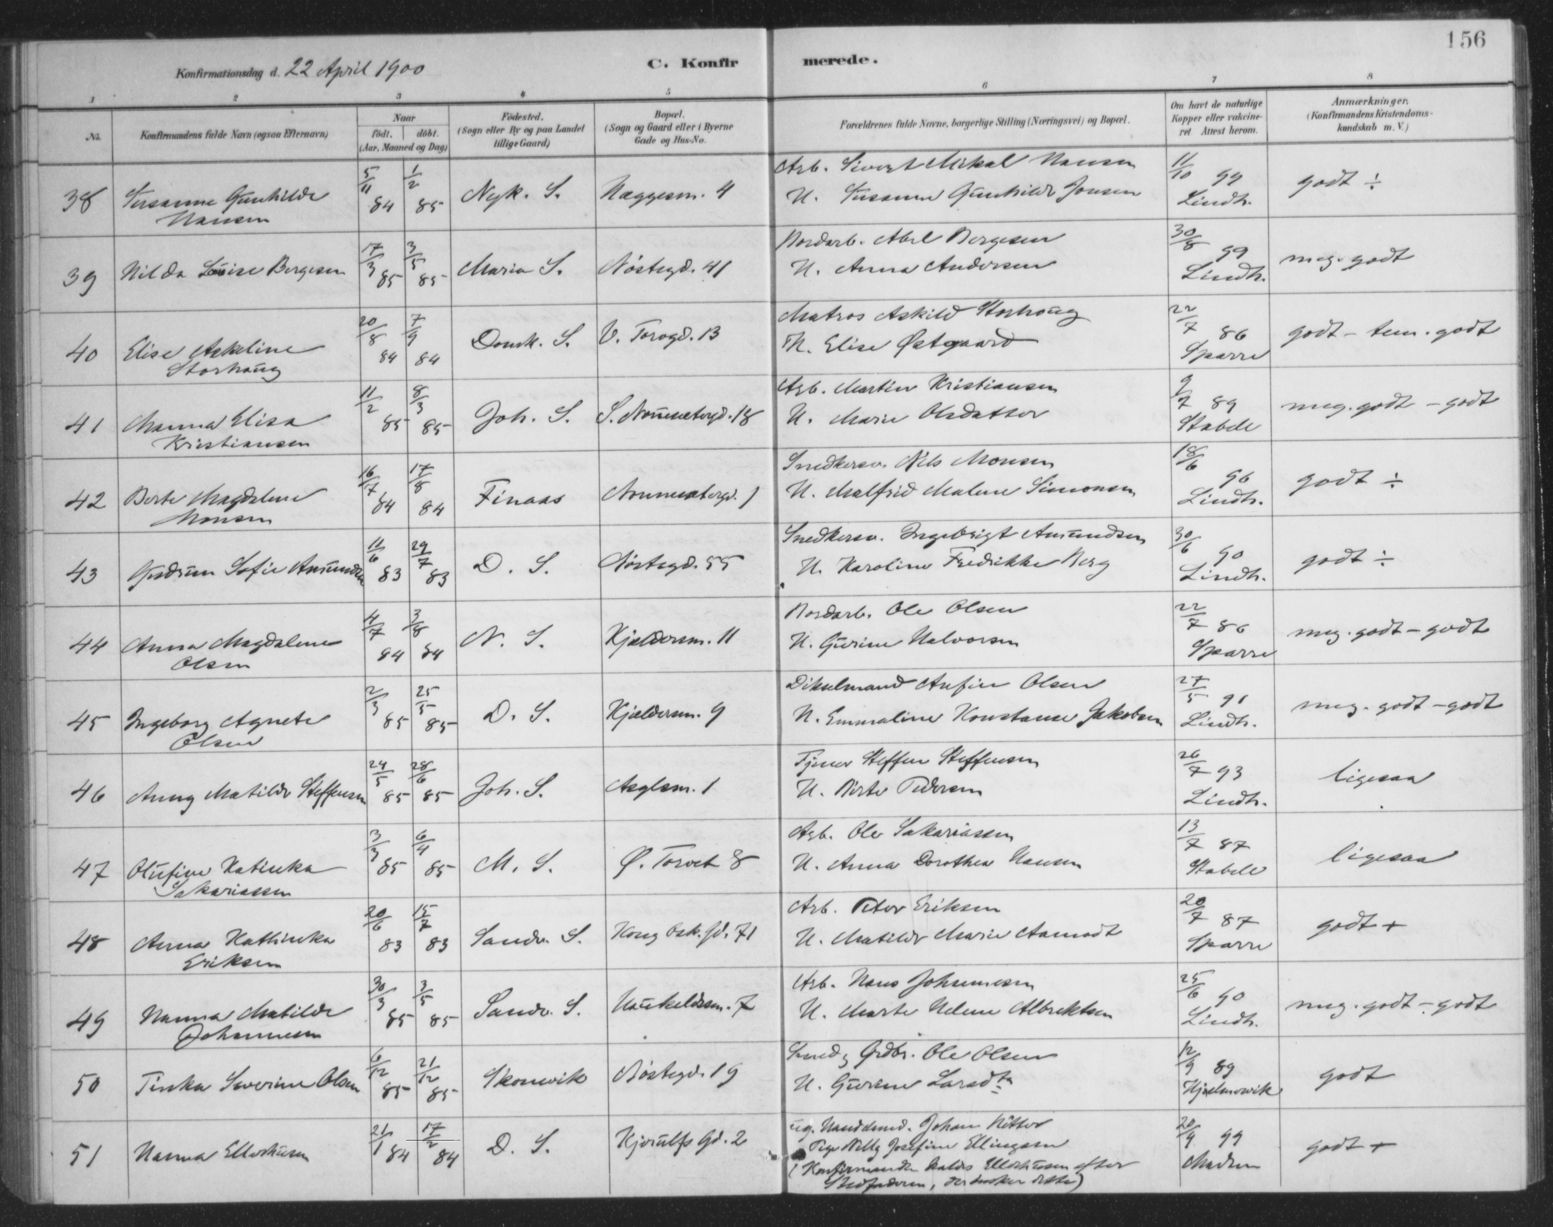 156
Konfirmationsdag d. 22 April 1900
C. Konfirmerede.
1 2 3 4 5 6 7 8
No.
Konfirmandens fulde Navn (ogsaa Efternavn)
Naar
født. døbt.
(Aar, Maaned og Dag)
Fødested.
(Sogn eller By og paa Landet
tillige Gaard)
Bopæl.
(Sogn og Gaard eller i Byerne
Gade og Hus-No.
Forældrenes fulde Navne, borgerlige Stilling (Næringsvei) og Bopæl.
Om havt de naturlige
Kopper eller vakcine-
ret Attest herom.
Anmærkninger.
(Konfirmandens Kristendoms-
kundskab m. V.)
38 Susanne Gunhilde Hansen 5/11 84 1/2 85 Nyk. S. Hæggesm. 4
Arb. Sivert Mikal Hansen
H. Susanne Gunhilde Jonsen
11/10 99 Lindh. godt ÷
39 Hilda Louise Bergesen 17/3 85 3/5 85 Maria S. Nøstegd. 41
Bordarb. Abel Bergesen
H. Anna Andersen
30/8 99 Lindh. meg. godt
40 Elise Askeline Storhaug 20/8 84 7/9 84 Domk. S. V. Torvgd. 13
Matros Askild Storhaug
H. Elise Østgaard
22/7 86 Sparre godt - tem. godt
41 Manna Elisa Kristiansen 11/2 85 8/3 85 Joh. S. S. Nonnetergd. 18
Arb. Martin Kristiansen
H. Marie Olsdatter
2/7 89 Stabell meg. godt - godt
42 Berte Magdalene Monsen 16/7 84 17/8 84 Finaas Nonnetergd. 1
Snedkersv. Nils Monsen
H. Malfrid Malene Simonsen
18/6 96 Lindh. godt ÷
43 Gudrun Sofie Amundsen 11/6 83 29/7 83 D. S. Nøstegd. 55
Snedkersv. Ingebrigt Amundsen
H. Karoline Fredrikke Berg
30/6 90 Lindh. godt ÷
44 Anna Magdalene Olsen 4/7 84 3/8 84 N. S. Kjældersm. 11
Bordarb. Ole Olsen
H. Gurine Halvorsen
22/7 86 Sparre meg. godt - godt
45 Ingeborg Agnete Olsen 2/3 85 25/5 85 D. S. Kjældersm. 9
Dikselmand Anfin Olsen
H. Emmaline Konstanse Jakobsen
27/5 91 Lindh. meg. godt - godt
46 Anny Matilde Steffensen 24/5 85 28/6 85 Joh. S. Asylsm. 1
Tjener Steffen Steffensen
H. Birte Pedersen
26/7 93 Lindh. ligesaa
47 Olufine Katinka Sakariassen 3/3 85 6/4 85 M. S. Ø. Torvet 8
Arb. Ole Sakariassen
H. Anna Dorothea Hansen
13/7 87 Stabell ligesaa
48 Anna Kathinka Eriksen 20/6 83 15/7 83 Sandv. S. Kong Osk. gd. 71
Arb. Peter Eriksen
H. Matilde Marie Aamodt
20/7 87 Sparre godt +
49 Hanna Matilde Johannesen 30/3 85 3/5 85 Sandv. S. Haukeldsm. 7
Arb. Hans Johannesen
H. Marte Helene Albrektsen
25/6 90 Lindh. meg. godt - godt
50 Tinka Severine Olsen 6/12 85 21/12 85 Skonevik Nøstegd. 19
Ole Olsen
H. Gurine Larsdtr
12/9 89 godt
51 Hanna Ellertsen 21/1 84 17/2 84 D. S. Gd. 2
ug. Johan
Pige Nelly Josefine Ellingsen
(Konfirmanden kaldes efter
Stedfaderen, der ønsker dette)
20/9 99 Madsen godt +